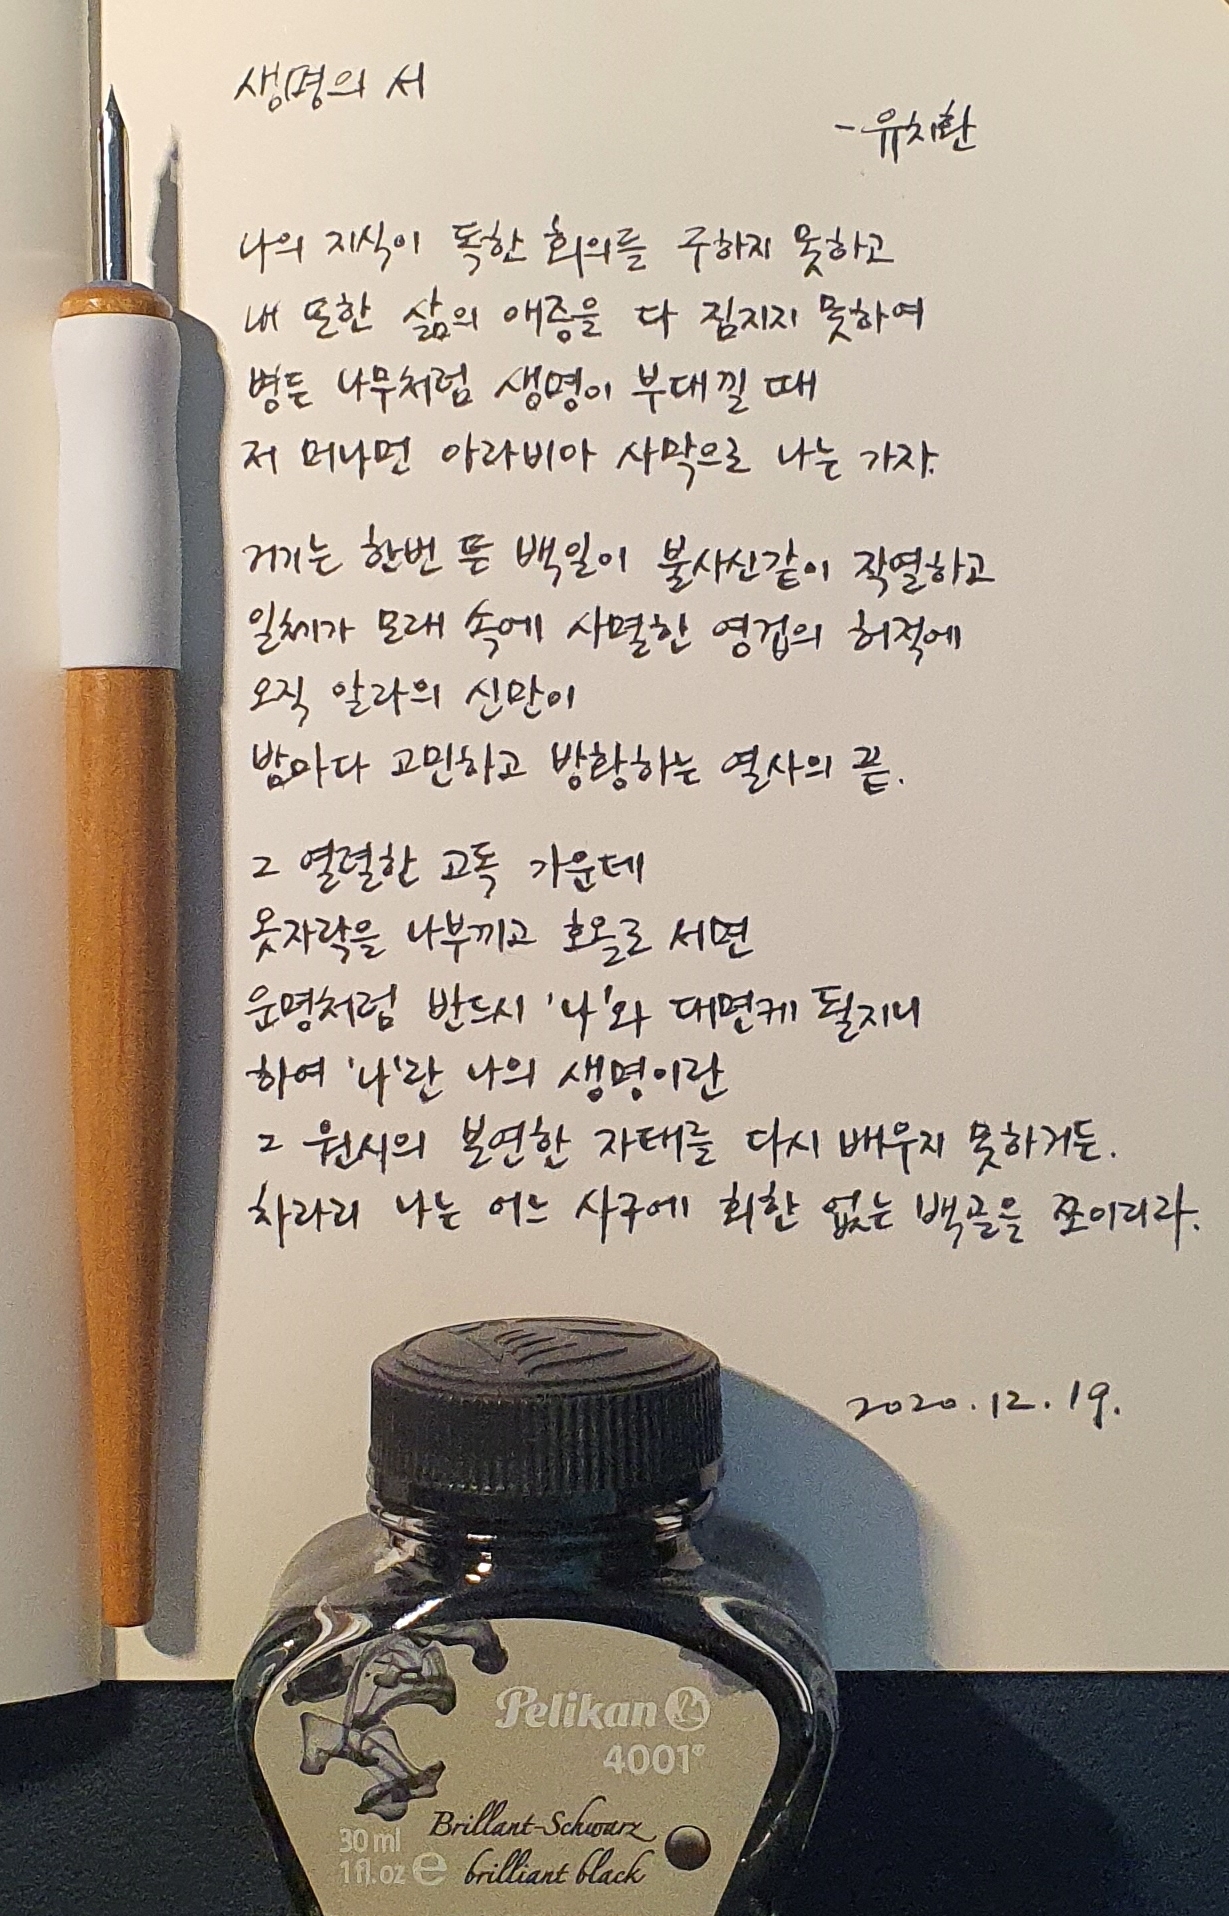 생명의 서
- 유치환
나의 지식이 독한 회의를 구하지 못하고
내 또한 삶의 애증을 다 짐지지 못하여
병든 나무처럼 생명이 부대낄 때
저 머나먼 아라비아 사막으로 나는 가자.
거기는 한번 뜬 백일이 불사신같이 작열하고
일체가 모래 속에 사멸한 영겁의 허적에
오직 알라의 신만이
밤마다 고민하고 방황하는 열사의 끝.
그 열렬한 고독 가운데
옷자락을 나부끼고 호올로 서면
운명처럼 반드시 '나'와 대면케 될지니
하여 '나'란 나의 생명이란
그 원시의 본연한 자태를 다시 배우지 못하거든.
차라리 나는 어느 사구에 회한 없는 백골을 쪼이리라.
2020.12.19.
Pelikan
4001®
Brillant-Schwarz
30 ml
1 fl.oz ℮ brilliant black